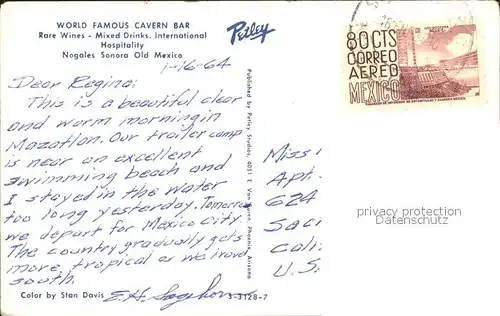 WORLD FAMOUS CAVERN BAR
Rare Wines - Mixed Drinks. International
Hospitality
Nogales Sonora Old Mexico
Petley
80 CTS
CORREO
AEREO
MEXICO
1-16-64
Dear Regina:
This is a beautiful clear
and warm morning in
Mazatlan. Our trailer camp
is near an excellent
swimming beach and
I stayed in the water
too long yesterday. Tomorrow
we depart for Mexico City.
The country gradually gets
more tropical as we travel
south.
Published by Petley Studios, 4051 E. Van Buren, Phoenix, Arizona
Miss
Apt.
624
Sac
Cali
U.S.
privacy protection
Datenschutz
Color by Stan Davis
S-3128-7